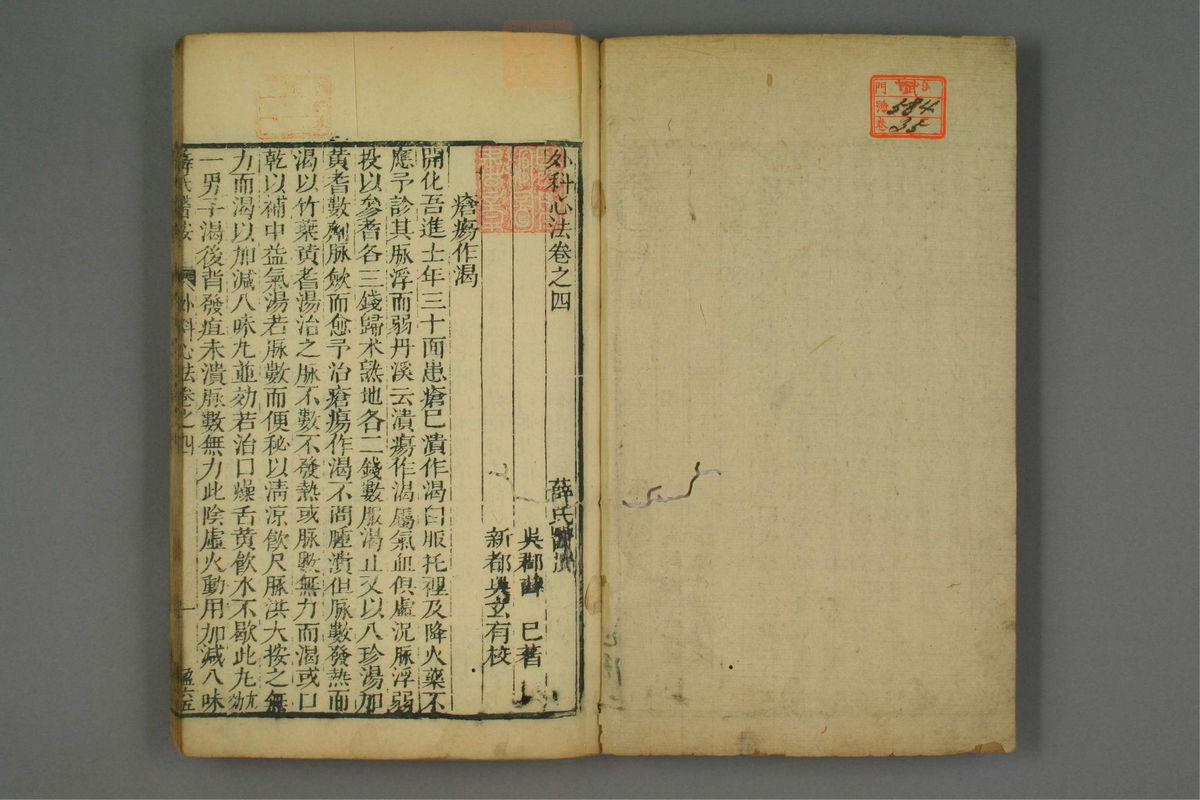 門
號 584
卷 35
外科心法卷之四　薛氏醫按
吳郡薛　已著
新都吳玄有校
瘡瘍作渴
開化吾進士年三十面患瘡已潰作渴自服托裡及降火藥不
應予診其脉浮而弱丹溪云潰瘍作渴屬氣血俱虛況脉浮弱
投以參耆各三錢歸术熟地各二錢數服渴止又以八珍湯加
黃耆數劑脉斂而愈予治瘡瘍作渴不問腫潰但脉數發熱而
渴以竹葉黃耆湯治之脉不數不發熱或脉數無力而渴或口
乾以補中益氣湯若脉數而便秘以清涼飲尺脉洪大按之無
力而渴以加減八味丸並効若治口燥舌黃飲水不歇此丸尤効
一男子渴後背發疽未潰脉數無力此陰虛火動用加減八味
薛氏醫按　外科心法卷之四　一